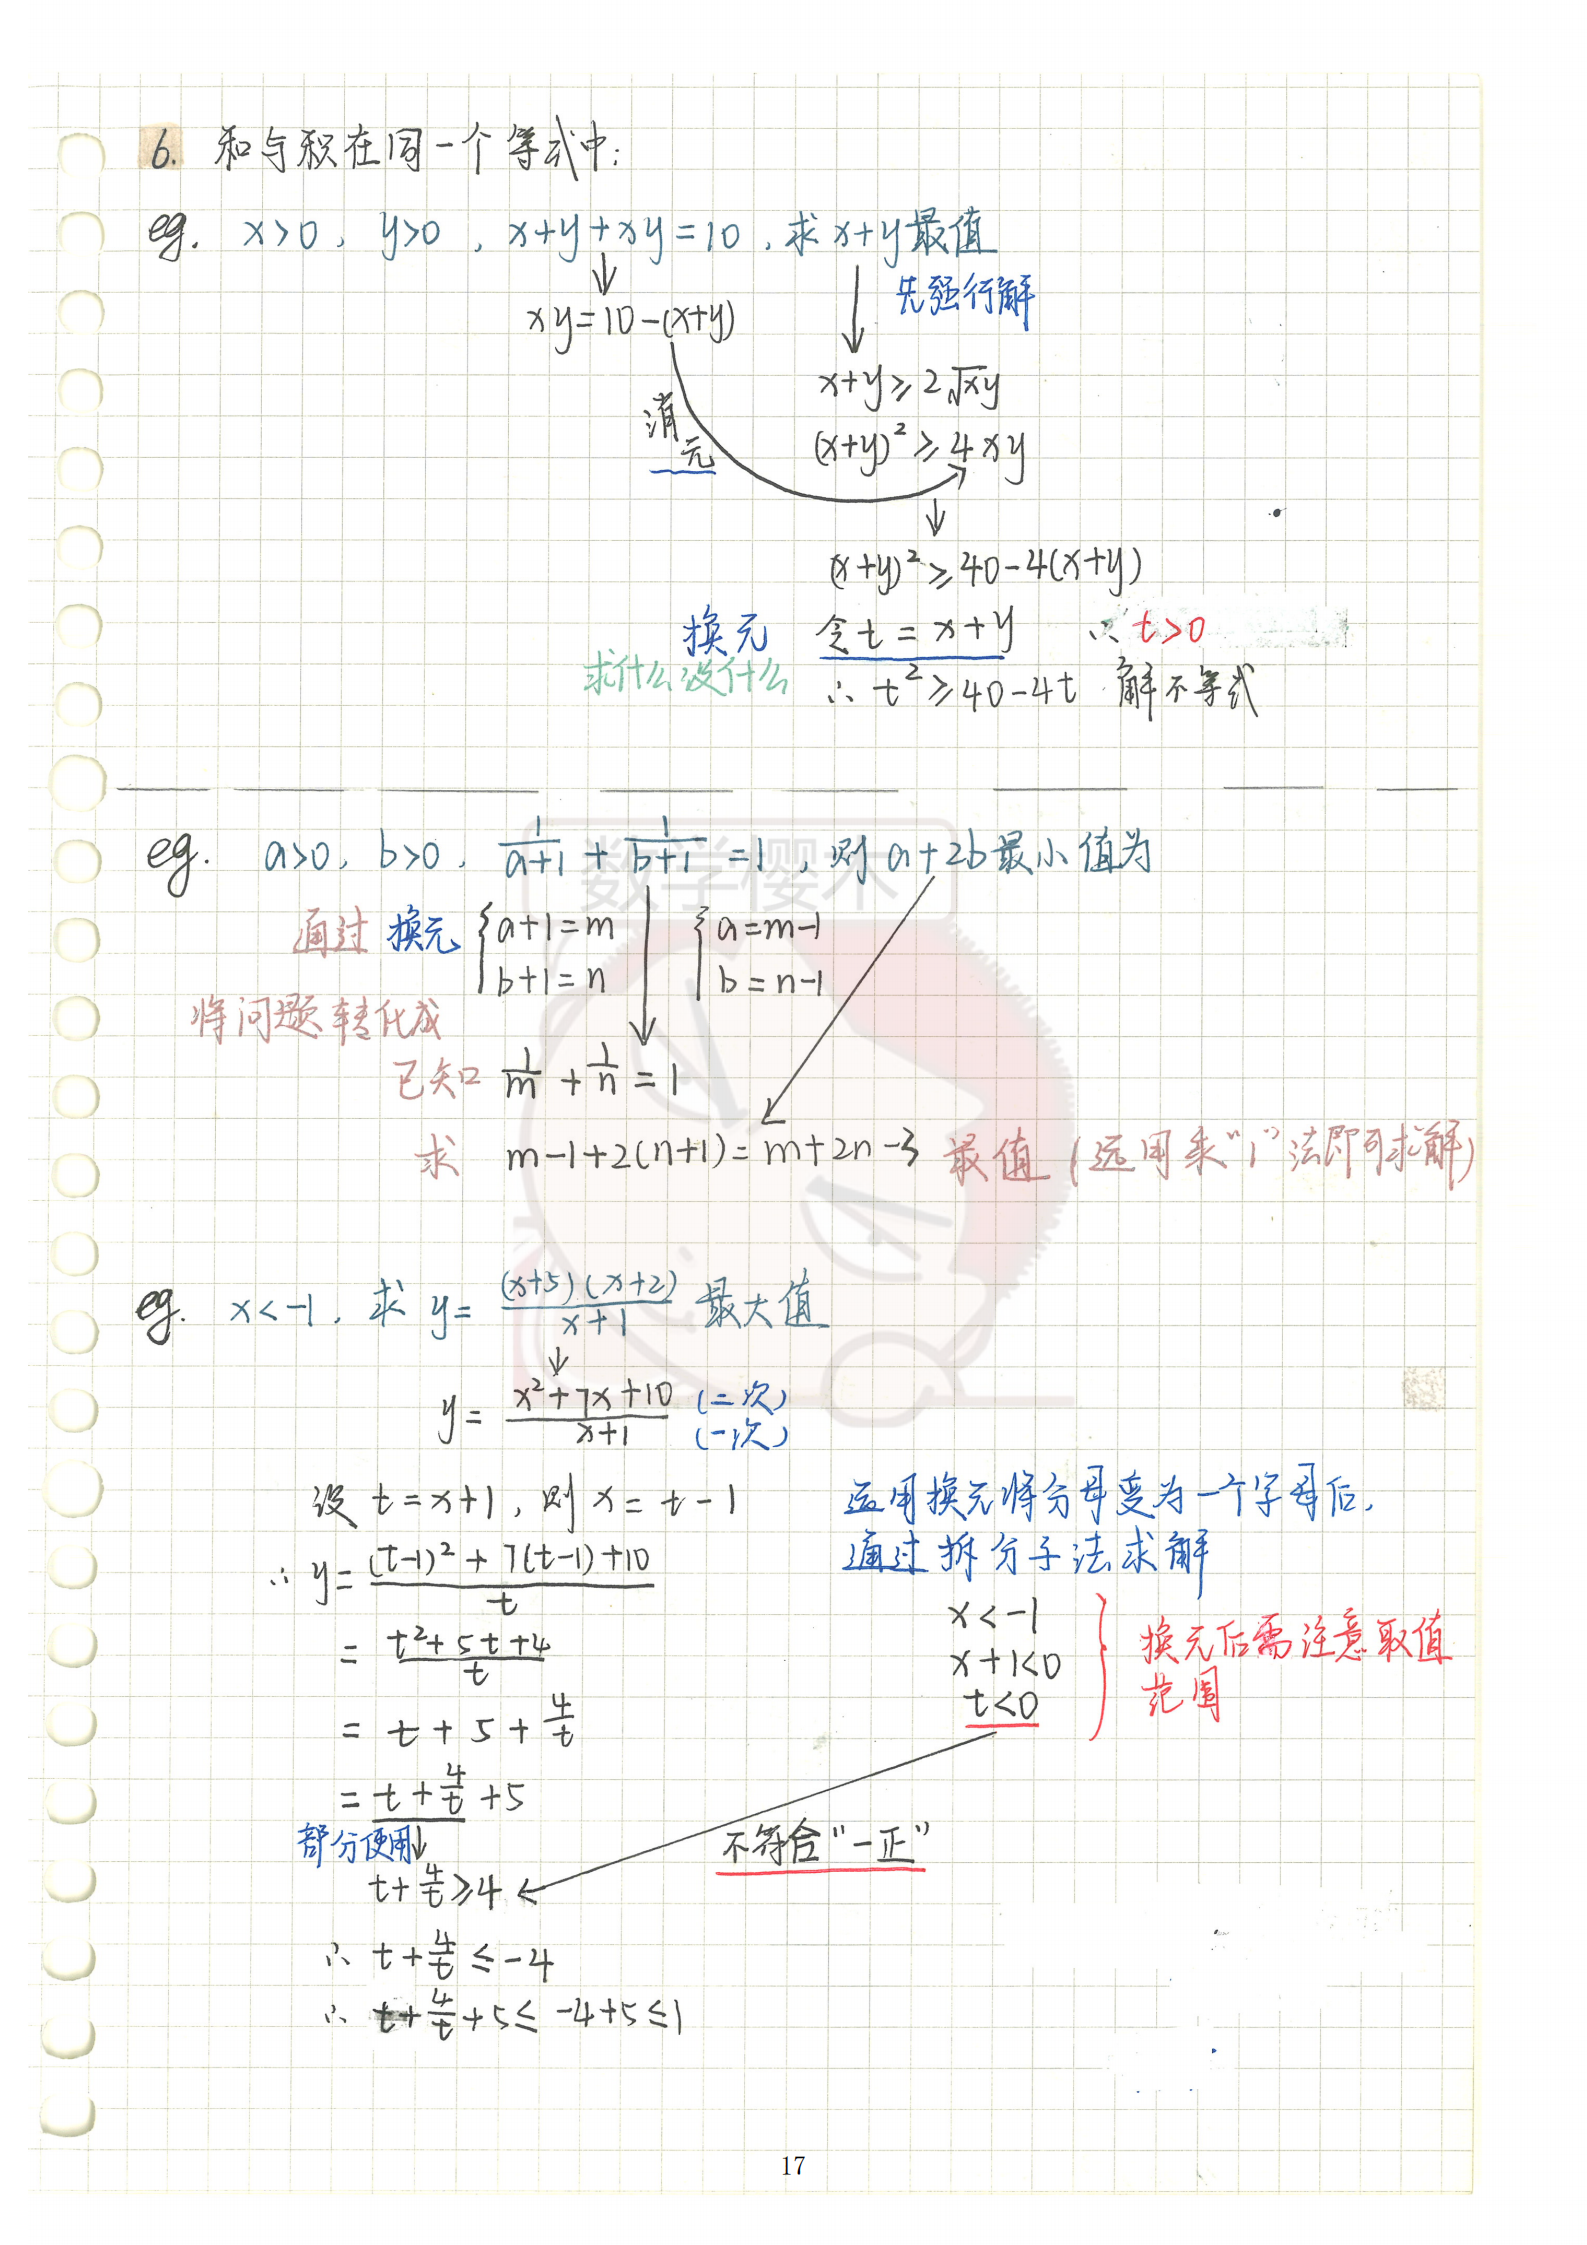 6. 和与积在同一个等式中:
eg. x>0, y>0, x+y+xy=10, 求x+y最值
先强行解
xy=10-(x+y)
x+y≥2√xy
消元
(x+y)²≥4xy
(x+y)²≥40-4(x+y)
换元 令t=x+y ∴t>0
求什么设什么 ∴t²≥40-4t 解不等式
eg. a>0, b>0, 1/(a+1) + 1/(b+1) =1, 则a+2b最小值为
数学樱木
通过换元 {a+1=m {a=m-1
b+1=n b=n-1
将问题转化成
已知 1/m + 1/n = 1
求 m-1+2(n+1)=m+2n-3 最值(运用乘"1"法即可求解)
eg. x<-1, 求 y= (x+5)(x+2)/(x+1) 最大值
y= (x²+7x+10)/(x+1) (二次) (一次)
设t=x+1, 则x=t-1
运用换元将分母变为一个字母后,
通过拆分子法求解
∴y= ((t-1)²+7(t-1)+10)/t
x<-1
= (t²+5t+4)/t
x+1<0
换元后需注意取值
范围
t<0
= t+5+4/t
= t+4/t+5
部分使用
不符合"一正"
t+4/t≥4
∴ t+4/t≤-4
∴ t+4/t+5≤-4+5≤1
17